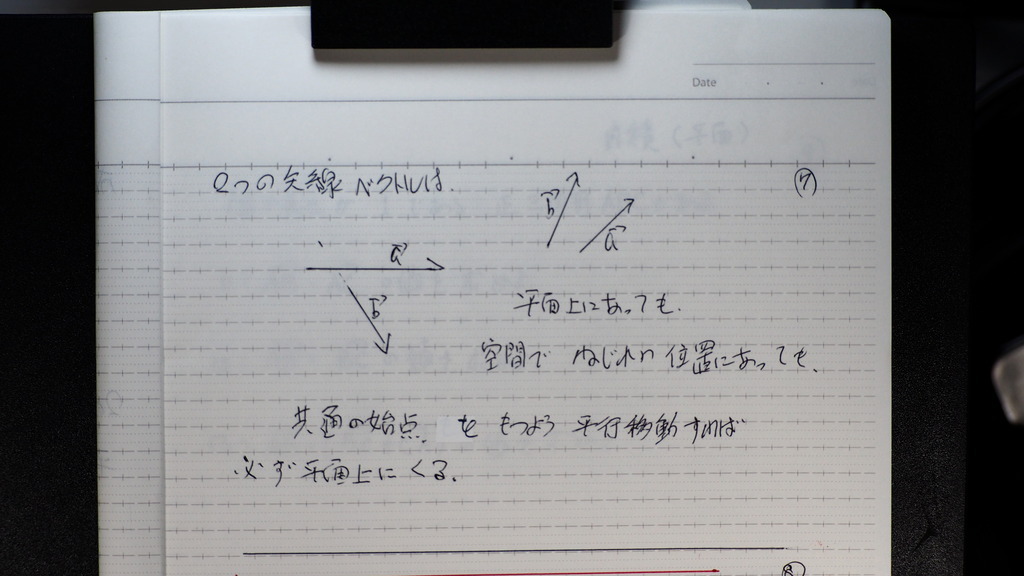 Date
2つの矢線ベクトルは.
⑦
b
a
a
b
平面上にあっても.
空間で ねじれの 位置にあっても.
共通の始点. を もつよう 平行移動すれば
必ず 平面上に くる.
⑧